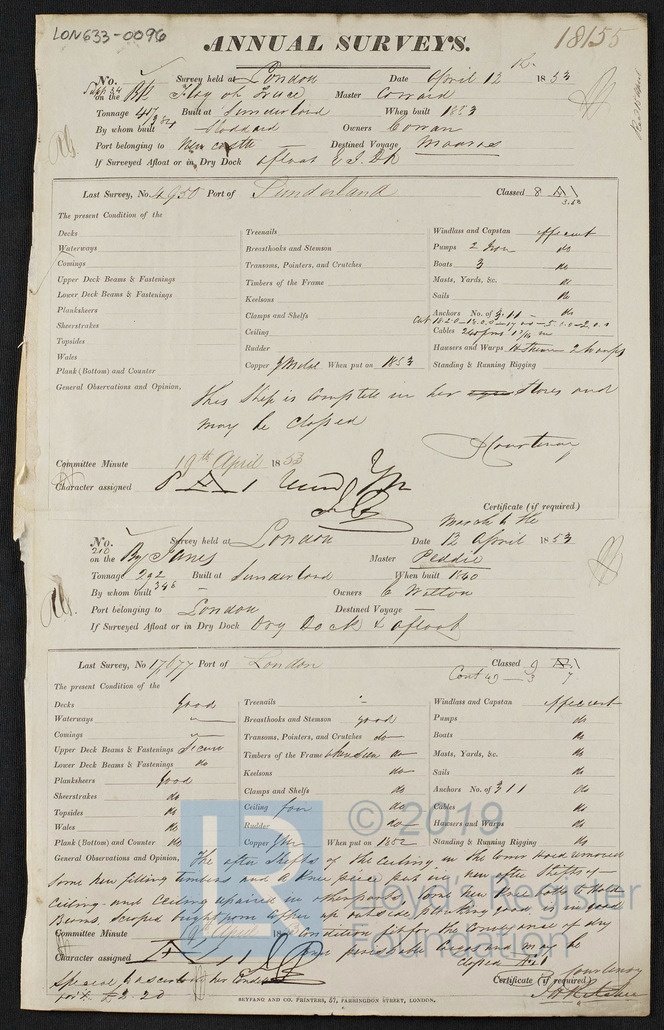 LON633-0096
ANNUAL SURVEYS.
18155
No. Survey held at London Date April 12 1853
on the Bk Flag of Truce Master Coward
Tonnage 417 Built at Sunderland When built 1853
By whom built Stoddard Owners Cowan
Port belonging to Newcastle Destined Voyage
If Surveyed Afloat or in Dry Dock afloat
Last Survey, No. 4950 Port of Sunderland Classed 8 A 1
The present Condition of the
Decks Treenails Windlass and Capstan efficient
Waterways Breasthooks and Stemson Pumps 2 Iron do
Comings Transoms, Pointers, and Crutches Boats 3 do
Upper Deck Beams & Fastenings Timbers of the Frame Masts, Yards, &c. do
Lower Deck Beams & Fastenings Keelsons Sails do
Planksheers Clamps and Shelfs Anchors No. of 3.1.1 do
Sheerstrakes Ceiling Cables
Topsides Rudder Hawsers and Warps
Wales Copper When put on 1853 Standing & Running Rigging
Plank (Bottom) and Counter
General Observations and Opinion,
This Ship is complete in her Stores and
may be classed
Courtenay
Committee Minute 19th April 1853
Character assigned 8 A 1
Certificate (if required)
March 6 the
No. 210 Survey held at London Date 12 April 1853
on the Bg Janes Master Peddie
Tonnage 292 Built at Sunderland When built 1840
346
By whom built – Owners C Wilton
Port belonging to London Destined Voyage –
If Surveyed Afloat or in Dry Dock Dry Dock & afloat
Last Survey, No 17,677 Port of London Classed 9 A 1
Cont 49 – 3 7
The present Condition of the
Decks good Treenails Windlass and Capstan efficient
Waterways Breasthooks and Stemson good Pumps do
Comings Transoms, Pointers, and Crutches do Boats do
Upper Deck Beams & Fastenings Secure Timbers of the Frame do Masts, Yards, &c. do
Lower Deck Beams & Fastenings do Keelsons do Sails do
Planksheers good Clamps and Shelfs do Anchors No. of 3 1 1 do
Sheerstrakes do Ceiling do Cables do
Topsides do Rudder do Hawsers and Warps do
Wales do Copper When put on 1852 Standing & Running Rigging do
Plank (Bottom) and Counter do
General Observations and Opinion, The after Shifts of the Ceiling in the lower Hold removed
Some new filling timbers and a Knee piece put in, new after Shifts of
Ceiling and Ceiling repaired in other parts, some new
Beams, scraped bright from Copper up outside planking good, is in good
Condition fit for the Conveyance of dry
and perishable Cargoes and may be
classed
Committee Minute 19th April 18
Character assigned
Courtenay
Certificate (if required)
Special
SEYFANG AND CO. PRINTERS, 57, FARRINGDON STREET, LONDON.
LR
© 2019
Lloyd's Register
Foundation